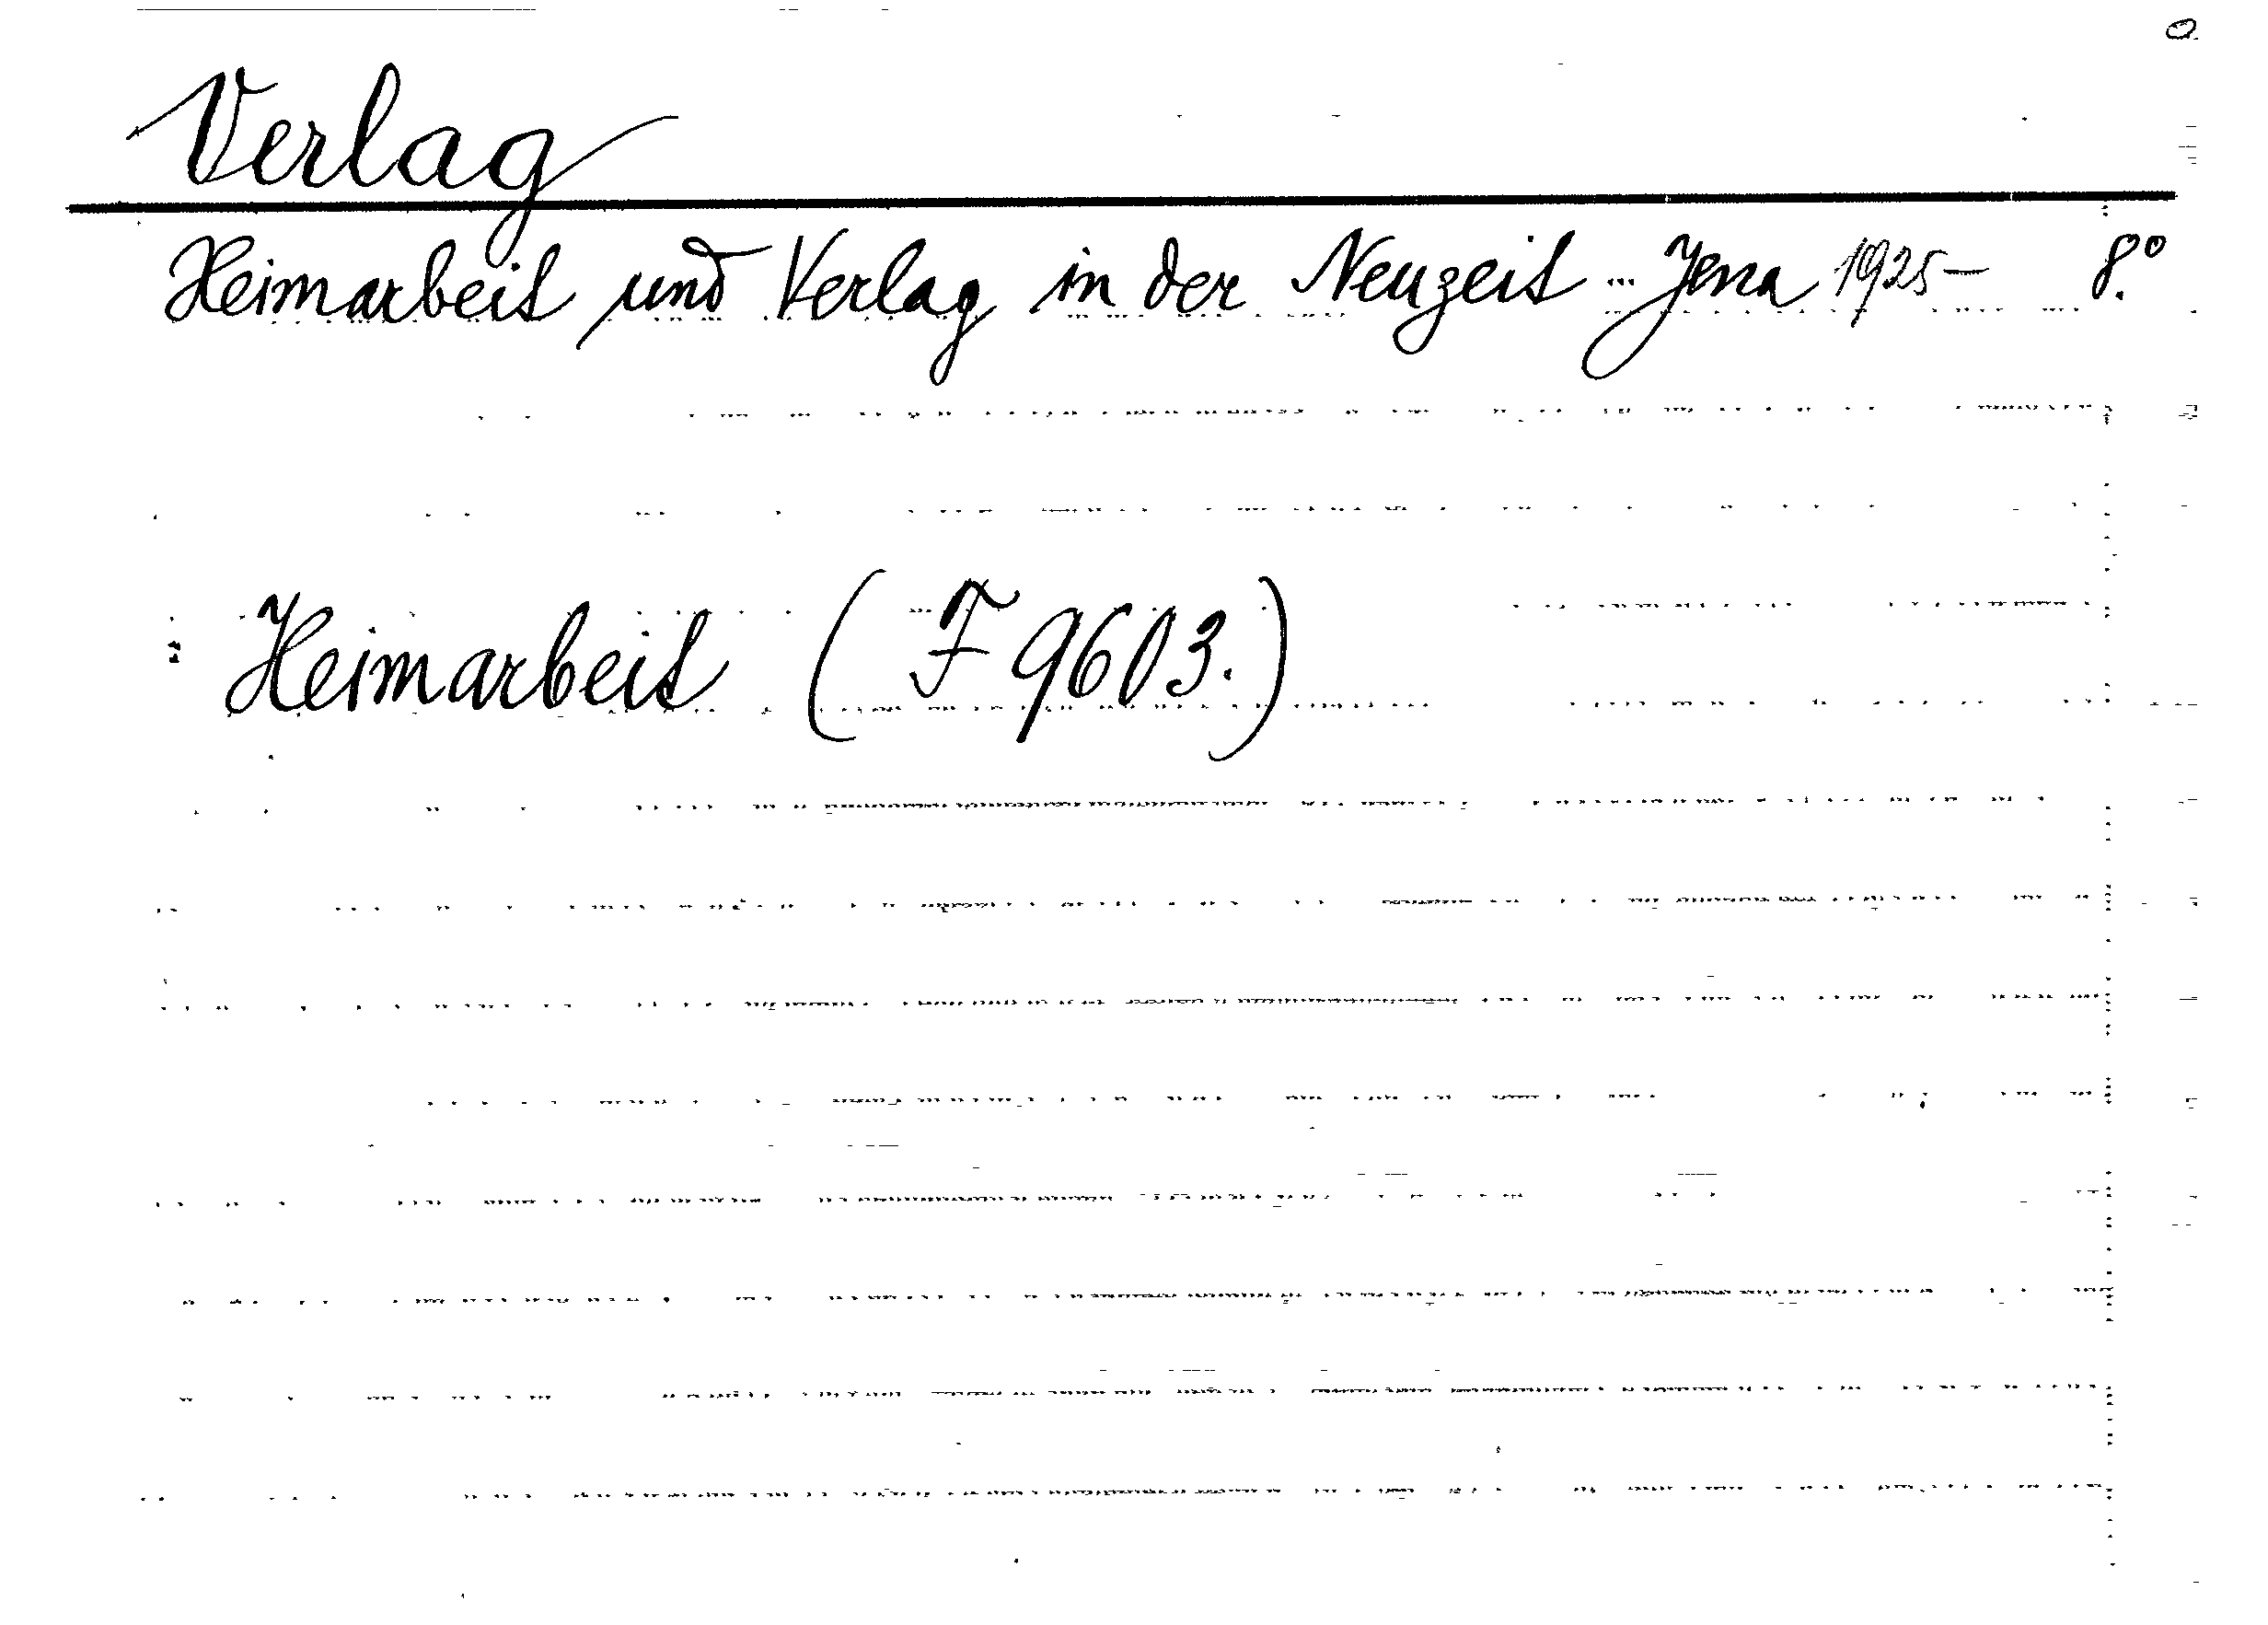 Verlag
Heimarbeit und Verlag in der Neuzeit ... Jena 1925- 8.°
Heimarbeit (F 9603.)